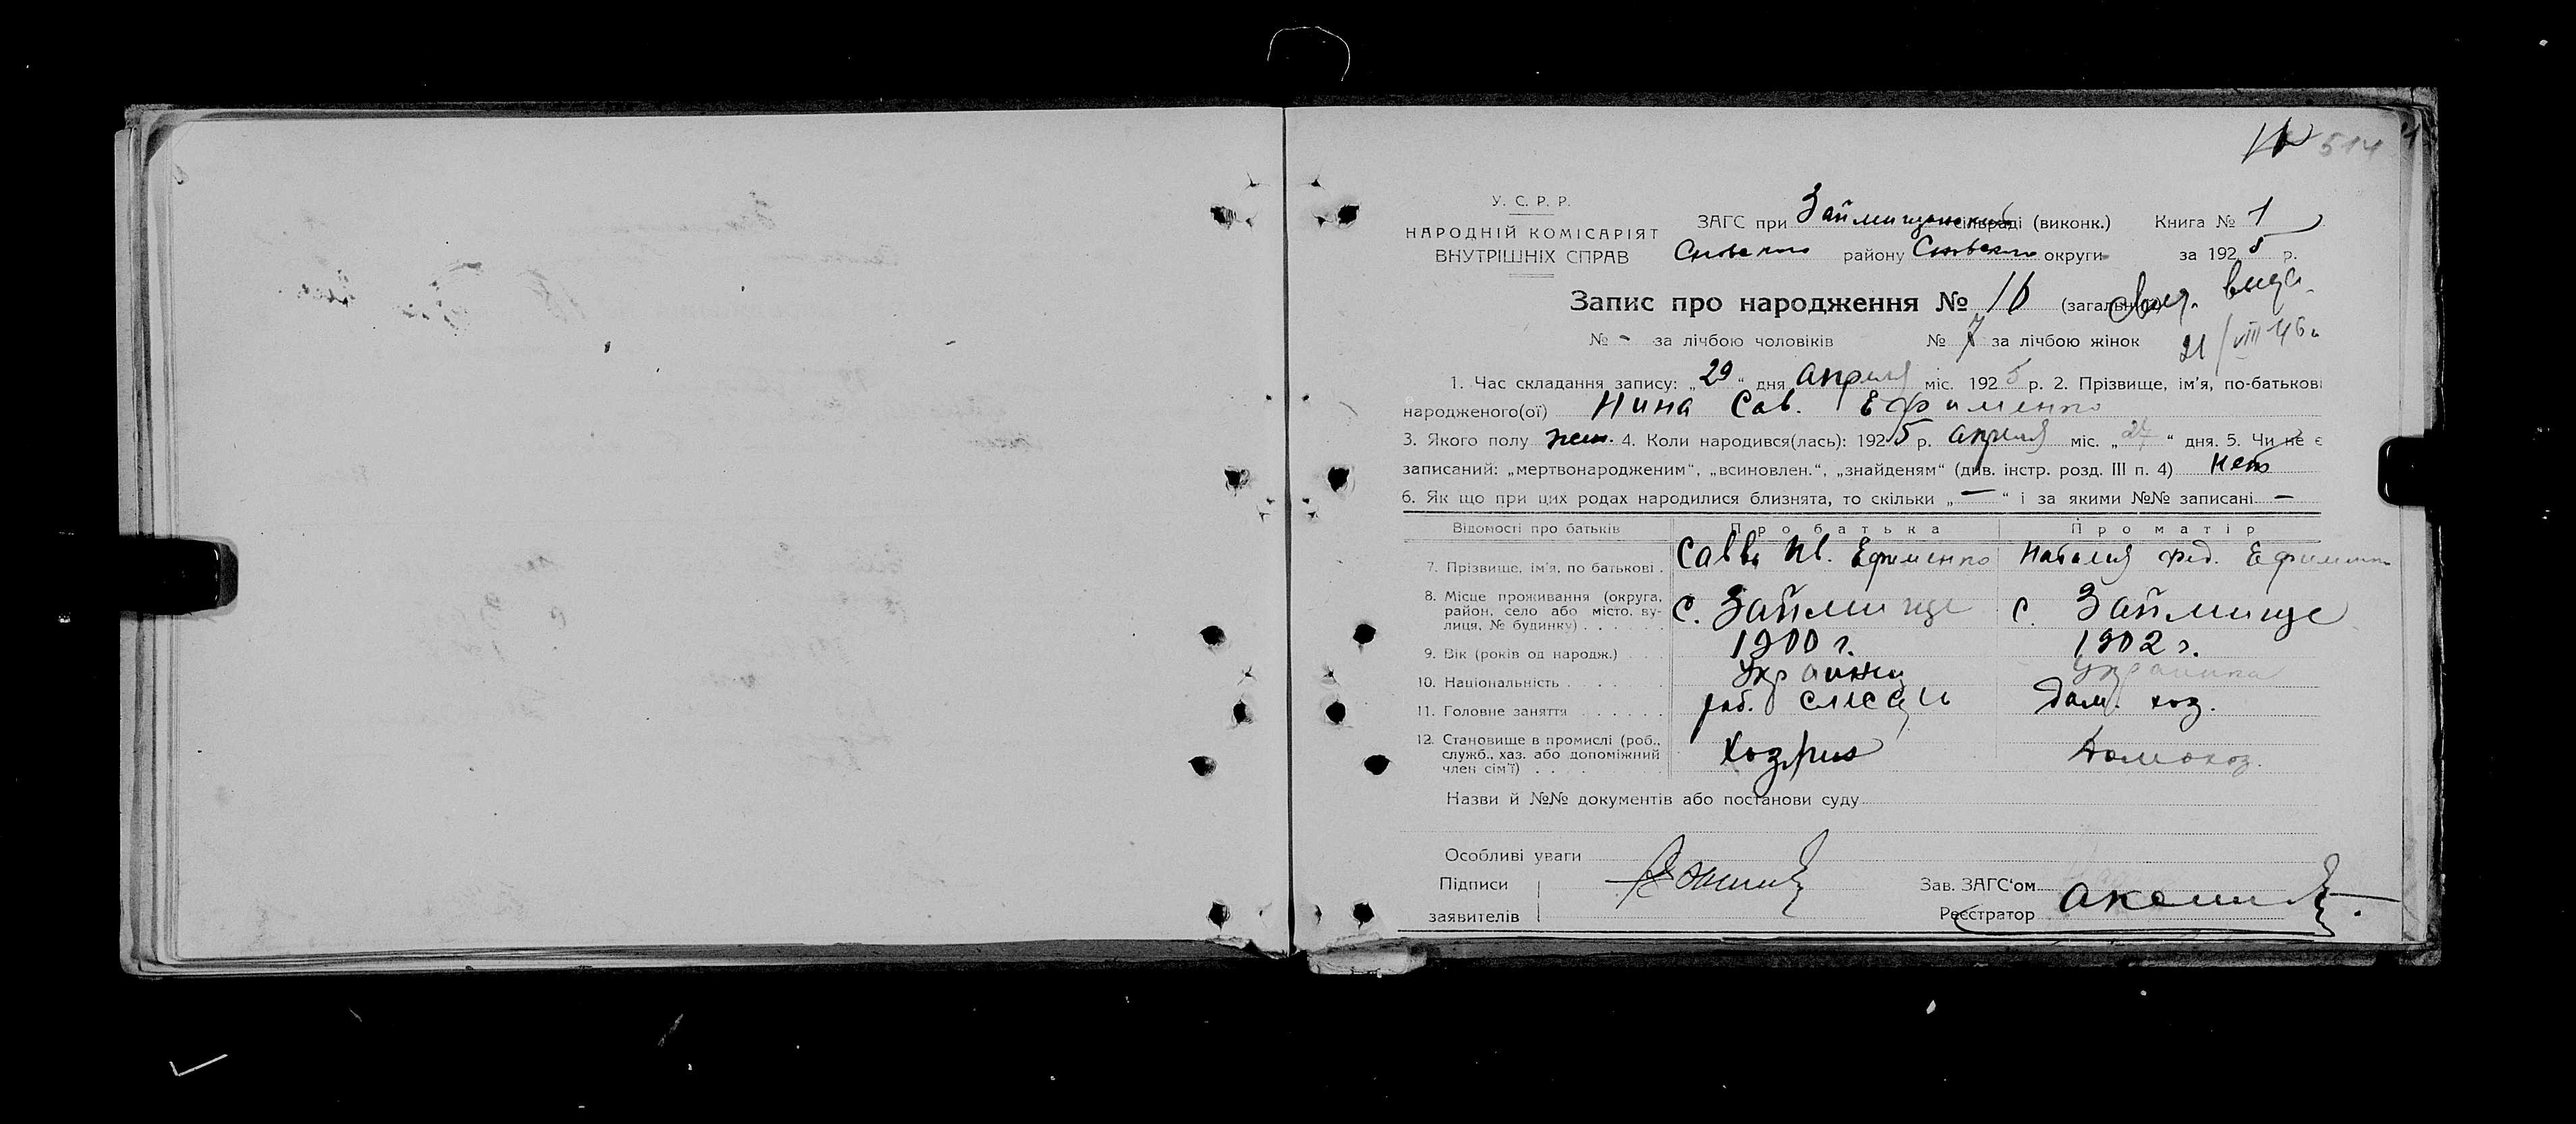 514
У. С. Р. Р.
НАРОДНІЙ КОМІСАРІЯТ
ВНУТРІШНІХ СПРАВ
ЗАГС при Займищанской сільраді (виконк.) Книга № 1
Сновского району Сновского округи за 1925 р.
Запис про народження № 16 (загальний)
Свид. выд.
21/VIII 46 г.
№ - за лічбою чоловіків № 7 за лічбою жінок
1. Час складання запису: „29“ дня апреля міс. 1925 р. 2. Прізвище, ім'я, по-батькові
народженого(ої) Нина Сав. Ефименко
3. Якого полу жен. 4. Коли народився(лась): 1925 р. апреля міс. „27“ дня. 5. Чи не є
записаний: „мертвонародженим“, „всиновлен.“, „знайденям“ (див. інстр. розд. III п. 4) нет
6. Як що при цих родах народилися близнята, то скільки „—“ і за якими №№ записані —
Відомості про батьків Про батька Про матір
7. Прізвище, ім'я, по батькові . Савва Ив. Ефименко Наталия Фед. Ефименко
8. Місце проживання (округа, район, село або місто, вулиця, № будинку) . . . . . с. Займище с. Займище
9. Вік (років од народж.) . . . 1900 г. 1902 г.
10. Національність . . . . . Украинец Украинка
11. Головне заняття . . . . . . раб. слесарь Дом. хоз.
12. Становище в промислі (роб., служб., хаз. або допоміжний член сім'ї) . . . . Домохоз.
Назви й №№ документів або постанови суду
Особливі уваги
Підписи
заявителів
Зав. ЗАГС'ом
Реєстратор